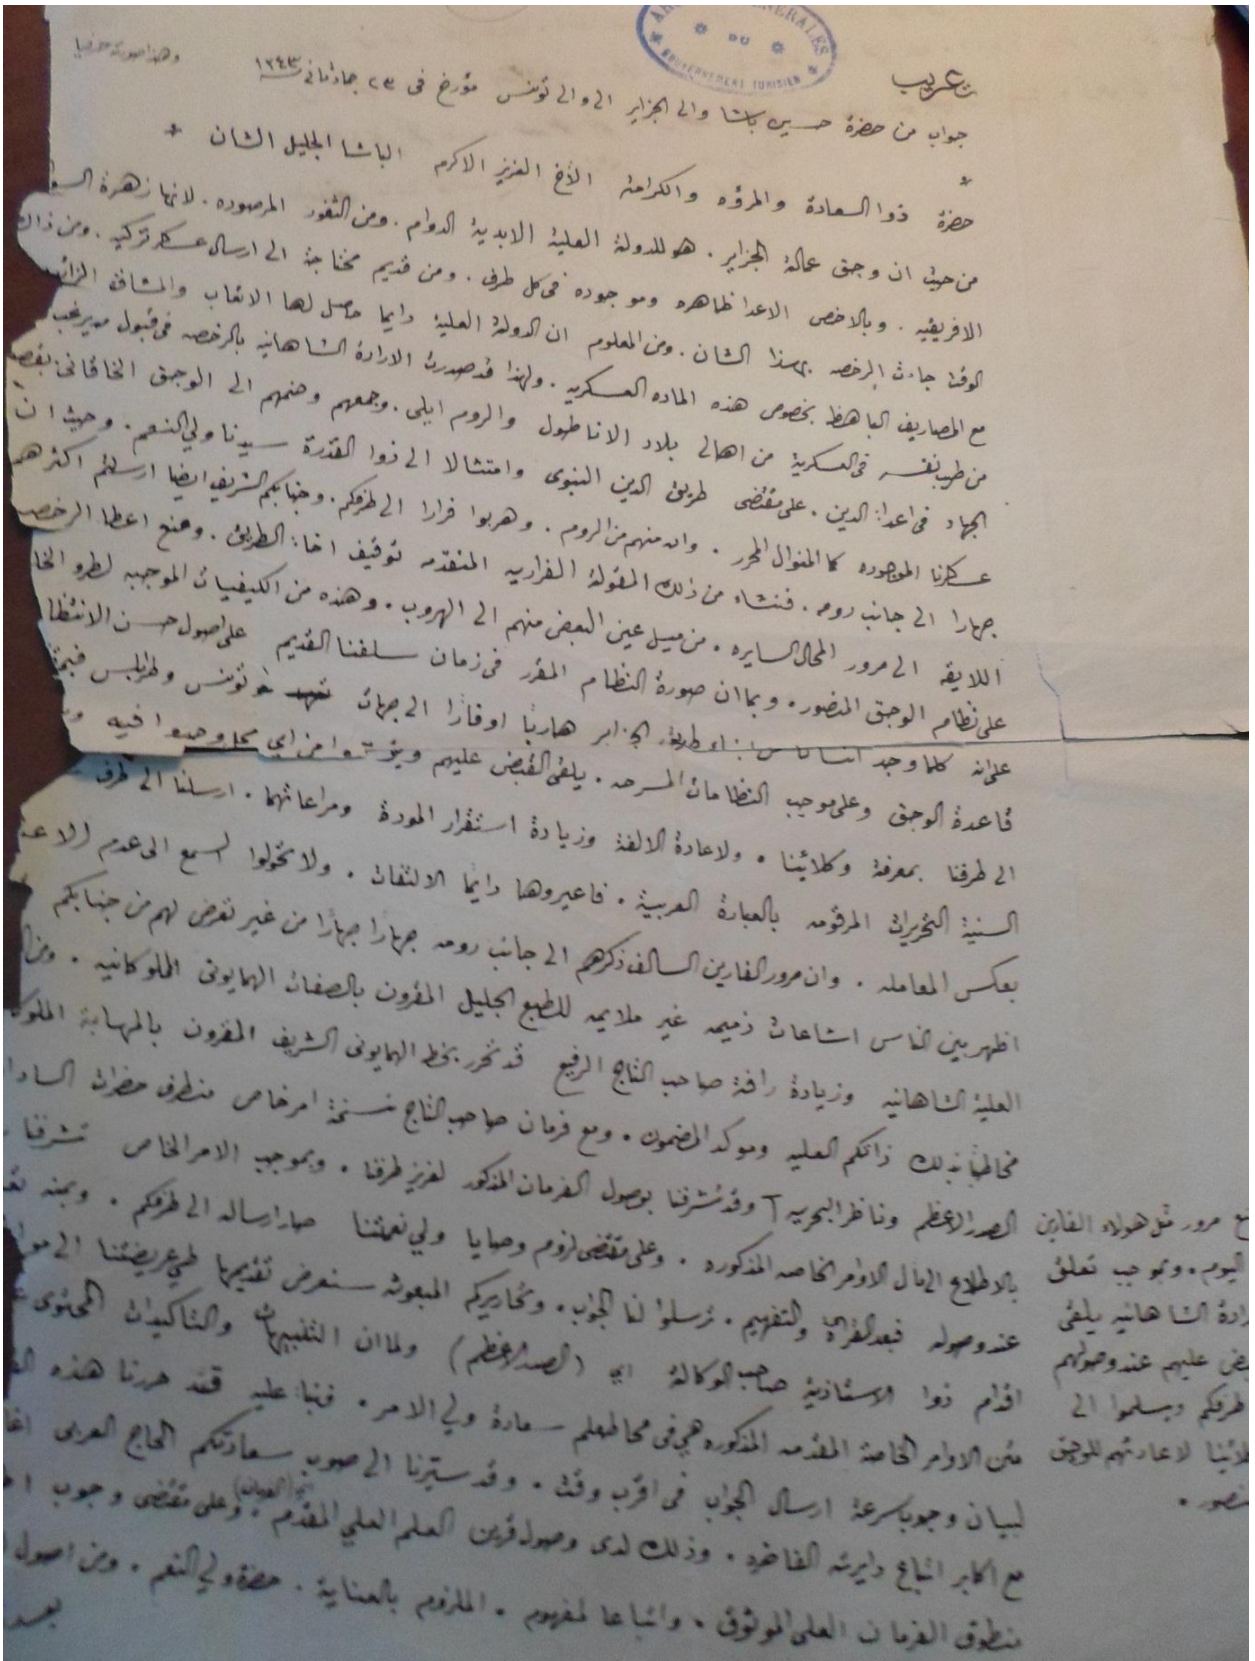 وهذا صورت حرفيا
ARCHIVES GENERALES
DU
GOUVERNEMENT TUNISIEN
تعريب
جواب من حضرة حسين باشا والى الجزاير الى والى تونس مؤرخ فى ٢٣ جمادثانى سنة ١٢٤٣
حضرة ذوا السعادة والمرؤه والكرامة الأخ العزيز الاكرم الباشا الجليل الشان
من حيث ان وجق عمالة الجزاير. هو للدولة العلية الابدية الدوام. ومن الثغور المرصوده. لانها زهرة
الافريقيه. وبالاخص الاعدا ظاهره وموجوده فى كل طرف. ومن قديم محتاجة الى ارسال عسكر تركيه. ومن ذالك
الوقت جاءت الرخصه بهذا الشان. ومن المعلوم ان الدولة العلية دايما حاصل لها الاتعاب والمشاق
مع المصاريف الباهظه بخصوص هذه الماده العسكريه. ولهذا قد صدرت الارادة الشاهانيه بالرخصه فى قبول من يرغب
من طيب نفسه فى العسكرية من اهالى بلاد الاناطول والروم ايلى. وجمعهم وضمهم الى الوجق الخاقانى بقصد
الجهاد فى اعداء الدين. على مقتضى طريق الدين النبوى وامتثالا الى ذوا القدرة سيدنا ولي النعم. وحيث ان
عسكرنا الموجوده كما المنوال المحرر. وان منهم من الروم. وهربوا فرارا الى طرفكم. وجنابكم الشريف ايضا ارسلتم اكثرهم
جهارا الى جانب رومه. فنشاء من ذلك المقولة الفراريه المتقدمه توقيف اخاء الطريق. ومنع اعطا الرخصه
اللايقه الى مرور المحال السايره. من ميل عين البعض منهم الى الهروب. وهذه من الكيفيات الموجبه لطرو
على نظام الوجق المنصور. وبما ان صورة النظام المقرر فى زمان سلفنا القديم على اصول حسن
على انه كلما وجد هاربًا او فارًا الى جهات تونس وطرابلس
قاعدة الوجق وعلى موجب النظامات. يلقى القبض عليهم من اي محل وجدوا فيه
الى طرفنا بمعرفة وكلائينا. ولاعادة الالفة وزيادة استقرار المودة ومراعاتها. ارسلنا الى طرف
السنية التحريرات المرقومه بالعبارة العربية. فاعيروها دايما الالتفات. ولا تحولوا السمع الى عدم
بعكس المعامله. وان مرور الفارين السالف ذكرهم الى جانب رومه جهارًا جهارًا من غير تعرض لهم من جنابكم
اظهر بين الناس اشاعات ذميمه غير ملايمه للطبع الجليل المقرون بالصفات الهمايونى الملوكانيه.
العلية الشاهانيه وزيادة رافة صاحب التاج الرفيع قد تحرر بخط الهمايونى الشريف المقرون بالمهابة
مخاطبًا بذلك ذاتكم العليه وموكد المضمون. ومع فرمان صاحب التاج نسخة امر خاص من طرف حضرات
الصدر الاعظم وناظر البحريه وقد تشرفنا بوصول الفرمان المذكور لعزيز طرفنا. وبموجب الامر الخاص تشرفنا
بالاطلاع الى مآل الاوامر الخاصه المذكوره. وعلى مقتضى لزوم وصايا ولي نعمتنا صار ارساله الى طرفكم. وبمنه
عند وصوله فبعد القراءة والتفهيم. ترسلوا لنا الجواب. وتحاريركم المبعوث سنعرض تقديمها طي عريضتنا الى
اقدام ذوا الاستاذية صاحب الوكالة اي (الصدر الاعظم) ولما ان التنبيهات والتاكيدات المحتوى
متن الاوامر الخاصة المقدمه المذكوره هي فى محاطعلم سعادة ولي الامر. فبناء عليه فقد حررنا هذه
لبيان وجوب سرعة ارسال الجواب فى اقرب وقت. وقد سيرنا الى صوب سعادتكم الحاج العربى
مع اكابر اتباع دايرته الفاخره. وذلك لدى وصول قرين العلم العلي المقدم. وعلى مقتضى وجوب
منطوق الفرمان العلى الموثوق. واتباعا لمفهوم. الملزوم بالعناية. حضرة ولي النعم. ومن اصول
مرور مثل هولاء الفارين
اليوم. وبموجب تعلق
الشاهانيه يلقى
عليهم عند وصولهم
طرفكم ويسلموا الى
لاعادتهم للوجق